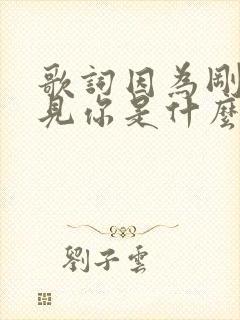 歌詞因為剛
見你是什麼
劉子雲